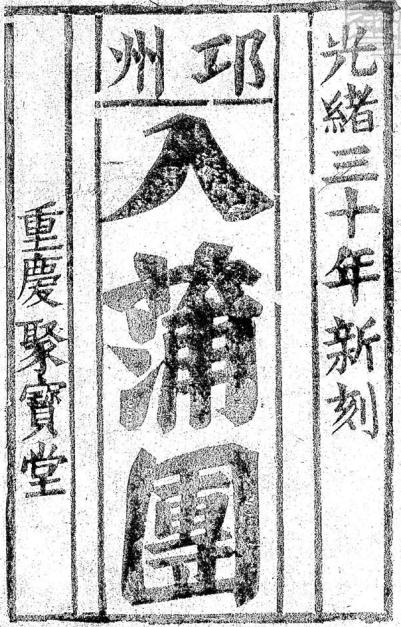 光緒三十年新刻
邛州
入蒲團
重慶聚寶堂